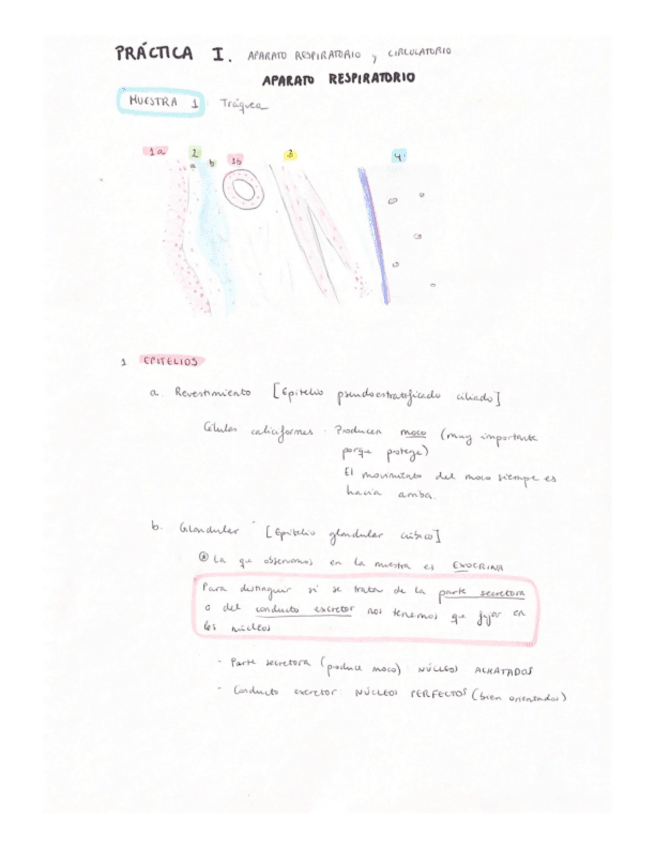 PRÁCTICA I. APARATO RESPIRATORIO y CIRCULATORIO
APARATO RESPIRATORIO
MUESTRA 1 Tráquea
1a 2 a b 1b 3 4
1 EPITELIOS
a. Revestimiento [Epitelio pseudoestratificado ciliado]
Células caliciformes · Producen moco (muy importante
porque protege)
El movimiento del moco siempre es
hacia arriba.
b. Glandular [Epitelio glandular cúbico]
La que observamos en la muestra es EXOCRINA
Para distinguir si se trata de la parte secretora
o del conducto excretor nos tenemos que fijar en
los núcleos
- Parte secretora (produce moco) NÚCLEOS ACHATADOS
- Conducto excretor NÚCLEOS PERFECTOS (bien orientados)